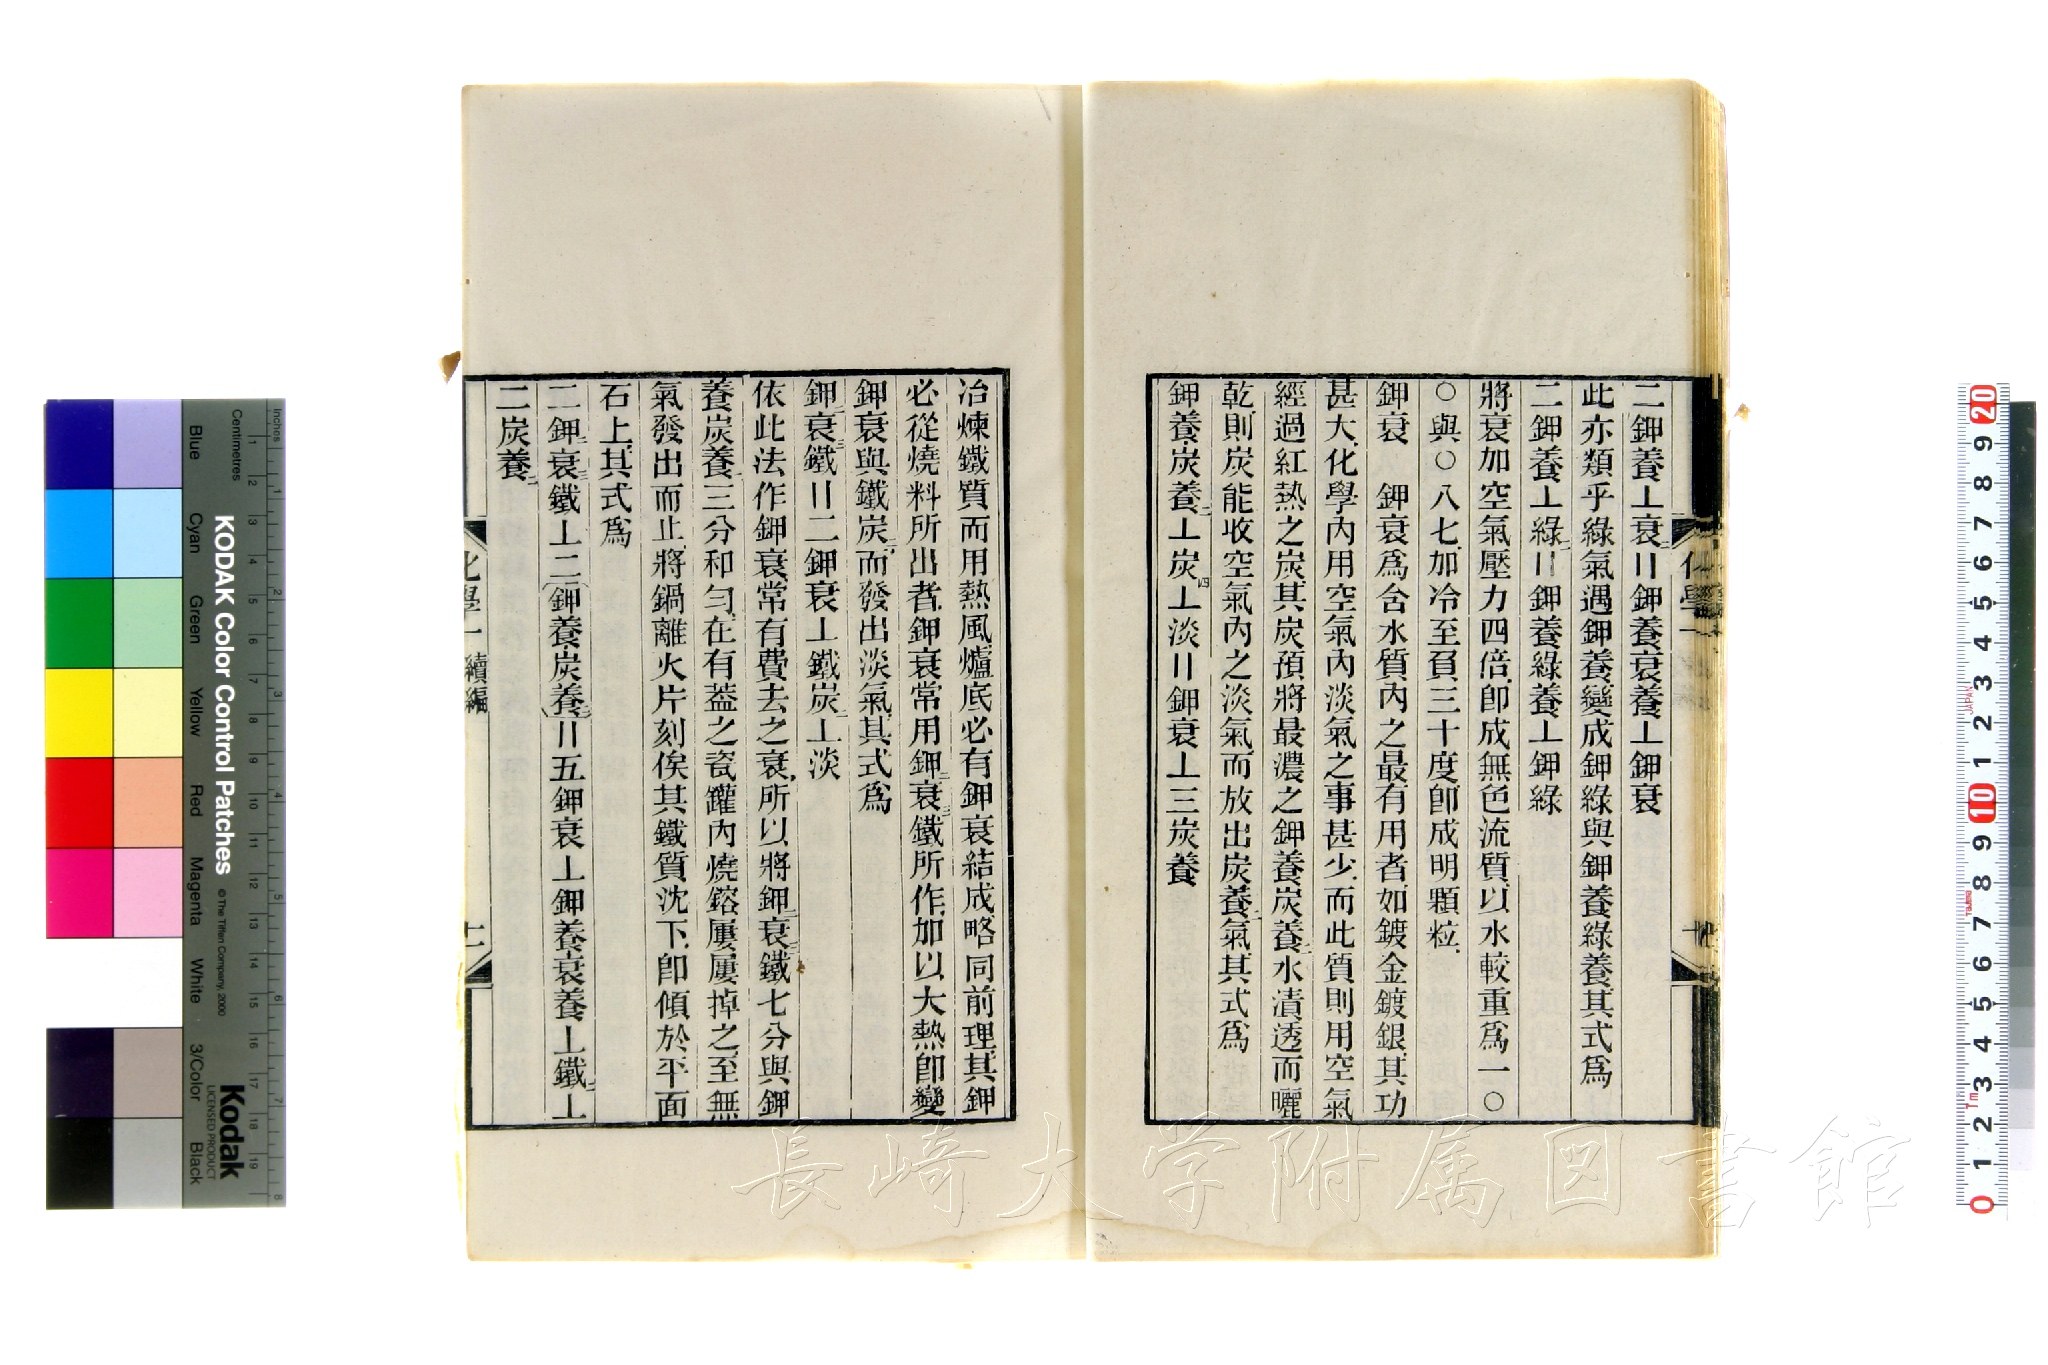 二鉀養⊥衰二=鉀養衰養⊥鉀衰
此亦類乎綠氣遇鉀養變成鉀綠與鉀養綠養其式爲
二鉀養⊥綠二=鉀養綠養⊥鉀綠
將衰加空氣壓力四倍卽成無色流質以水較重爲一〇
〇與〇八七加冷至負三十度卽成明顆粒
鉀衰 鉀衰爲含水質內之最有用者如鍍金鍍銀其功
甚大化學內用空氣內淡氣之事甚少而此質則用空氣
經過紅熱之炭其炭預將最濃之鉀養炭養二水漬透而曬
乾則炭能收空氣內之淡氣而放出炭養二氣其式爲
鉀養炭養二⊥炭四⊥淡=鉀衰⊥三炭養
冶煉鐵質而用熱風爐底必有鉀衰結成略同前理其鉀
必從燒料所出者鉀衰常用鉀二衰三鐵所作加以大熱卽變
鉀衰與鐵炭二而發出淡氣其式爲
鉀二衰三鐵=二鉀衰⊥鐵炭二⊥淡
依此法作鉀衰常有費去之衰所以將鉀二衰三鐵七分與鉀
養炭養二三分和勻在有蓋之瓷罐內燒鎔屢屢掉之至無
氣發出而止將鍋離火片刻俟其鐵質沈下卽傾於平面
石上其式爲
二鉀二衰三鐵⊥二(鉀養炭養二)=五鉀衰⊥鉀養衰養⊥鐵二⊥
二炭養二
化學一 續編
十二
化學
長崎大学附属図書館
KODAK Color Control Patches
© The Tiffen Company, 2000
Kodak
LICENSED PRODUCT
Inches
Centimetres
Blue
Cyan
Green
Yellow
Red
Magenta
White
3/Color
Black